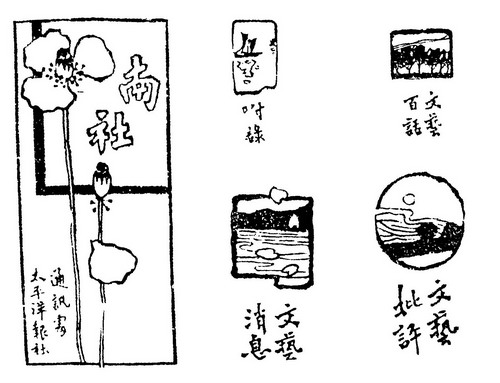 南社
通訊處
太平洋報社
坿錄
文藝
百話
文藝
消息
文藝
批評